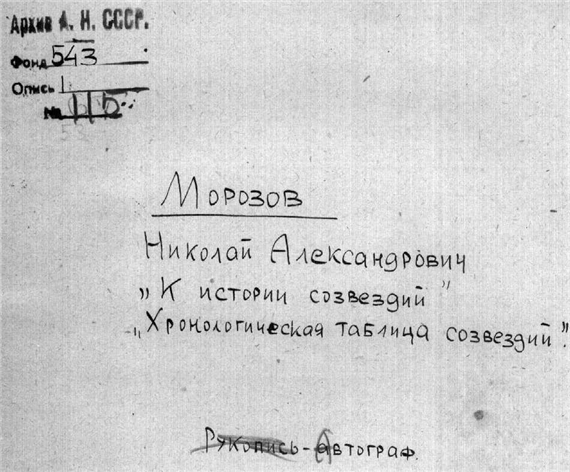 Архив А. Н. СССР.
Фонд 543
Опись 1
№ 115
Морозов
Николай Александрович
„К истории созвездий"
„Хронологическая таблица созвездий".
Рукопись-Автограф.